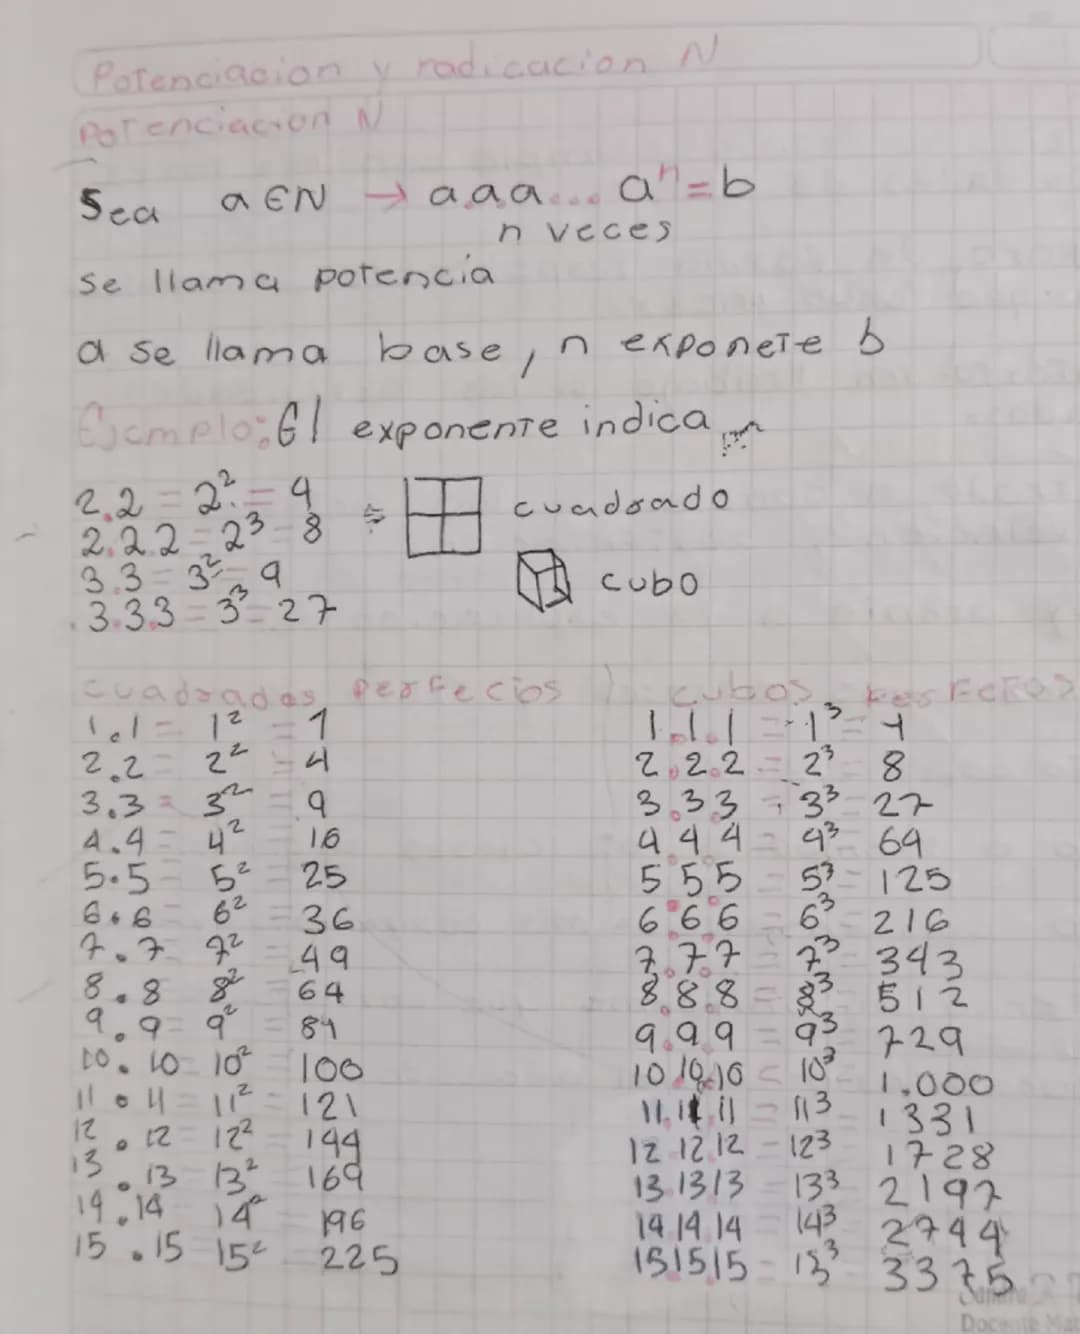 Potenciacion y radicacion N
Potenciacion N
Sea a ∈ N → a.a.a... aⁿ = b
n veces
se llama potencia
a se llama base, n exponete b
Ejemplo: El exponente indica
2.2 = 2² = 4 cuadrado
2.2.2 = 2³ = 8
3.3 = 3² = 9 cubo
3.3.3 = 3³ = 27
cuadrados perfectos
1.1 = 1² = 1
2.2 = 2² = 4
3.3 = 3² = 9
4.4 = 4² 16
5.5 = 5² = 25
6.6 = 6² = 36
7.7 = 7² = 49
8.8 8² = 64
9.9 = 9² = 81
10.10 = 10² = 100
11.11 = 11² = 121
12.12 = 12² = 144
13.13 = 13² = 169
14.14 = 14² 196
15.15 = 15² = 225
cubos perfectos
1.1.1 = 1³ = 1
2.2.2 = 2³ = 8
3.3.3 = 3³ = 27
4.4.4 = 4³ = 64
5.5.5 = 5³ = 125
6.6.6 = 6³ = 216
7.7.7 = 7³ = 343
8.8.8 = 8³ = 512
9.9.9 = 9³ = 729
10.10.10 = 10³ = 1.000
11.11.11 = 11³ 1331
12.12.12 = 12³ 1728
13.13.13 = 13³ = 2197
14.14.14 = 14³ = 2744
15.15.15 = 15³ = 3375
Docente